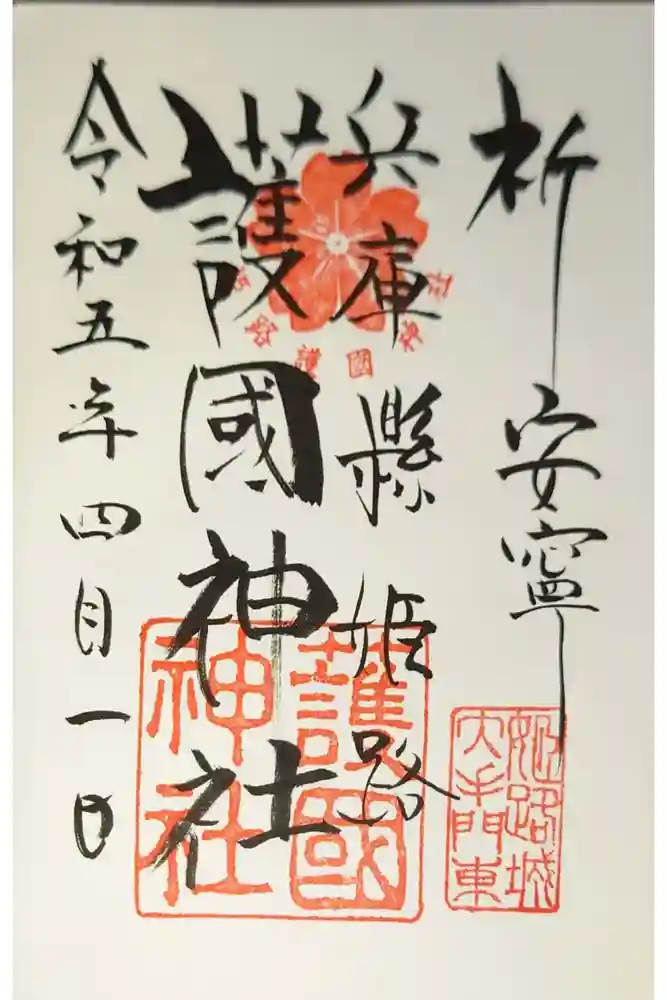 祈安寧
兵庫縣姫路
護國神社
令和五年四月一日
護國
護國
神社
姫路城
大手門東